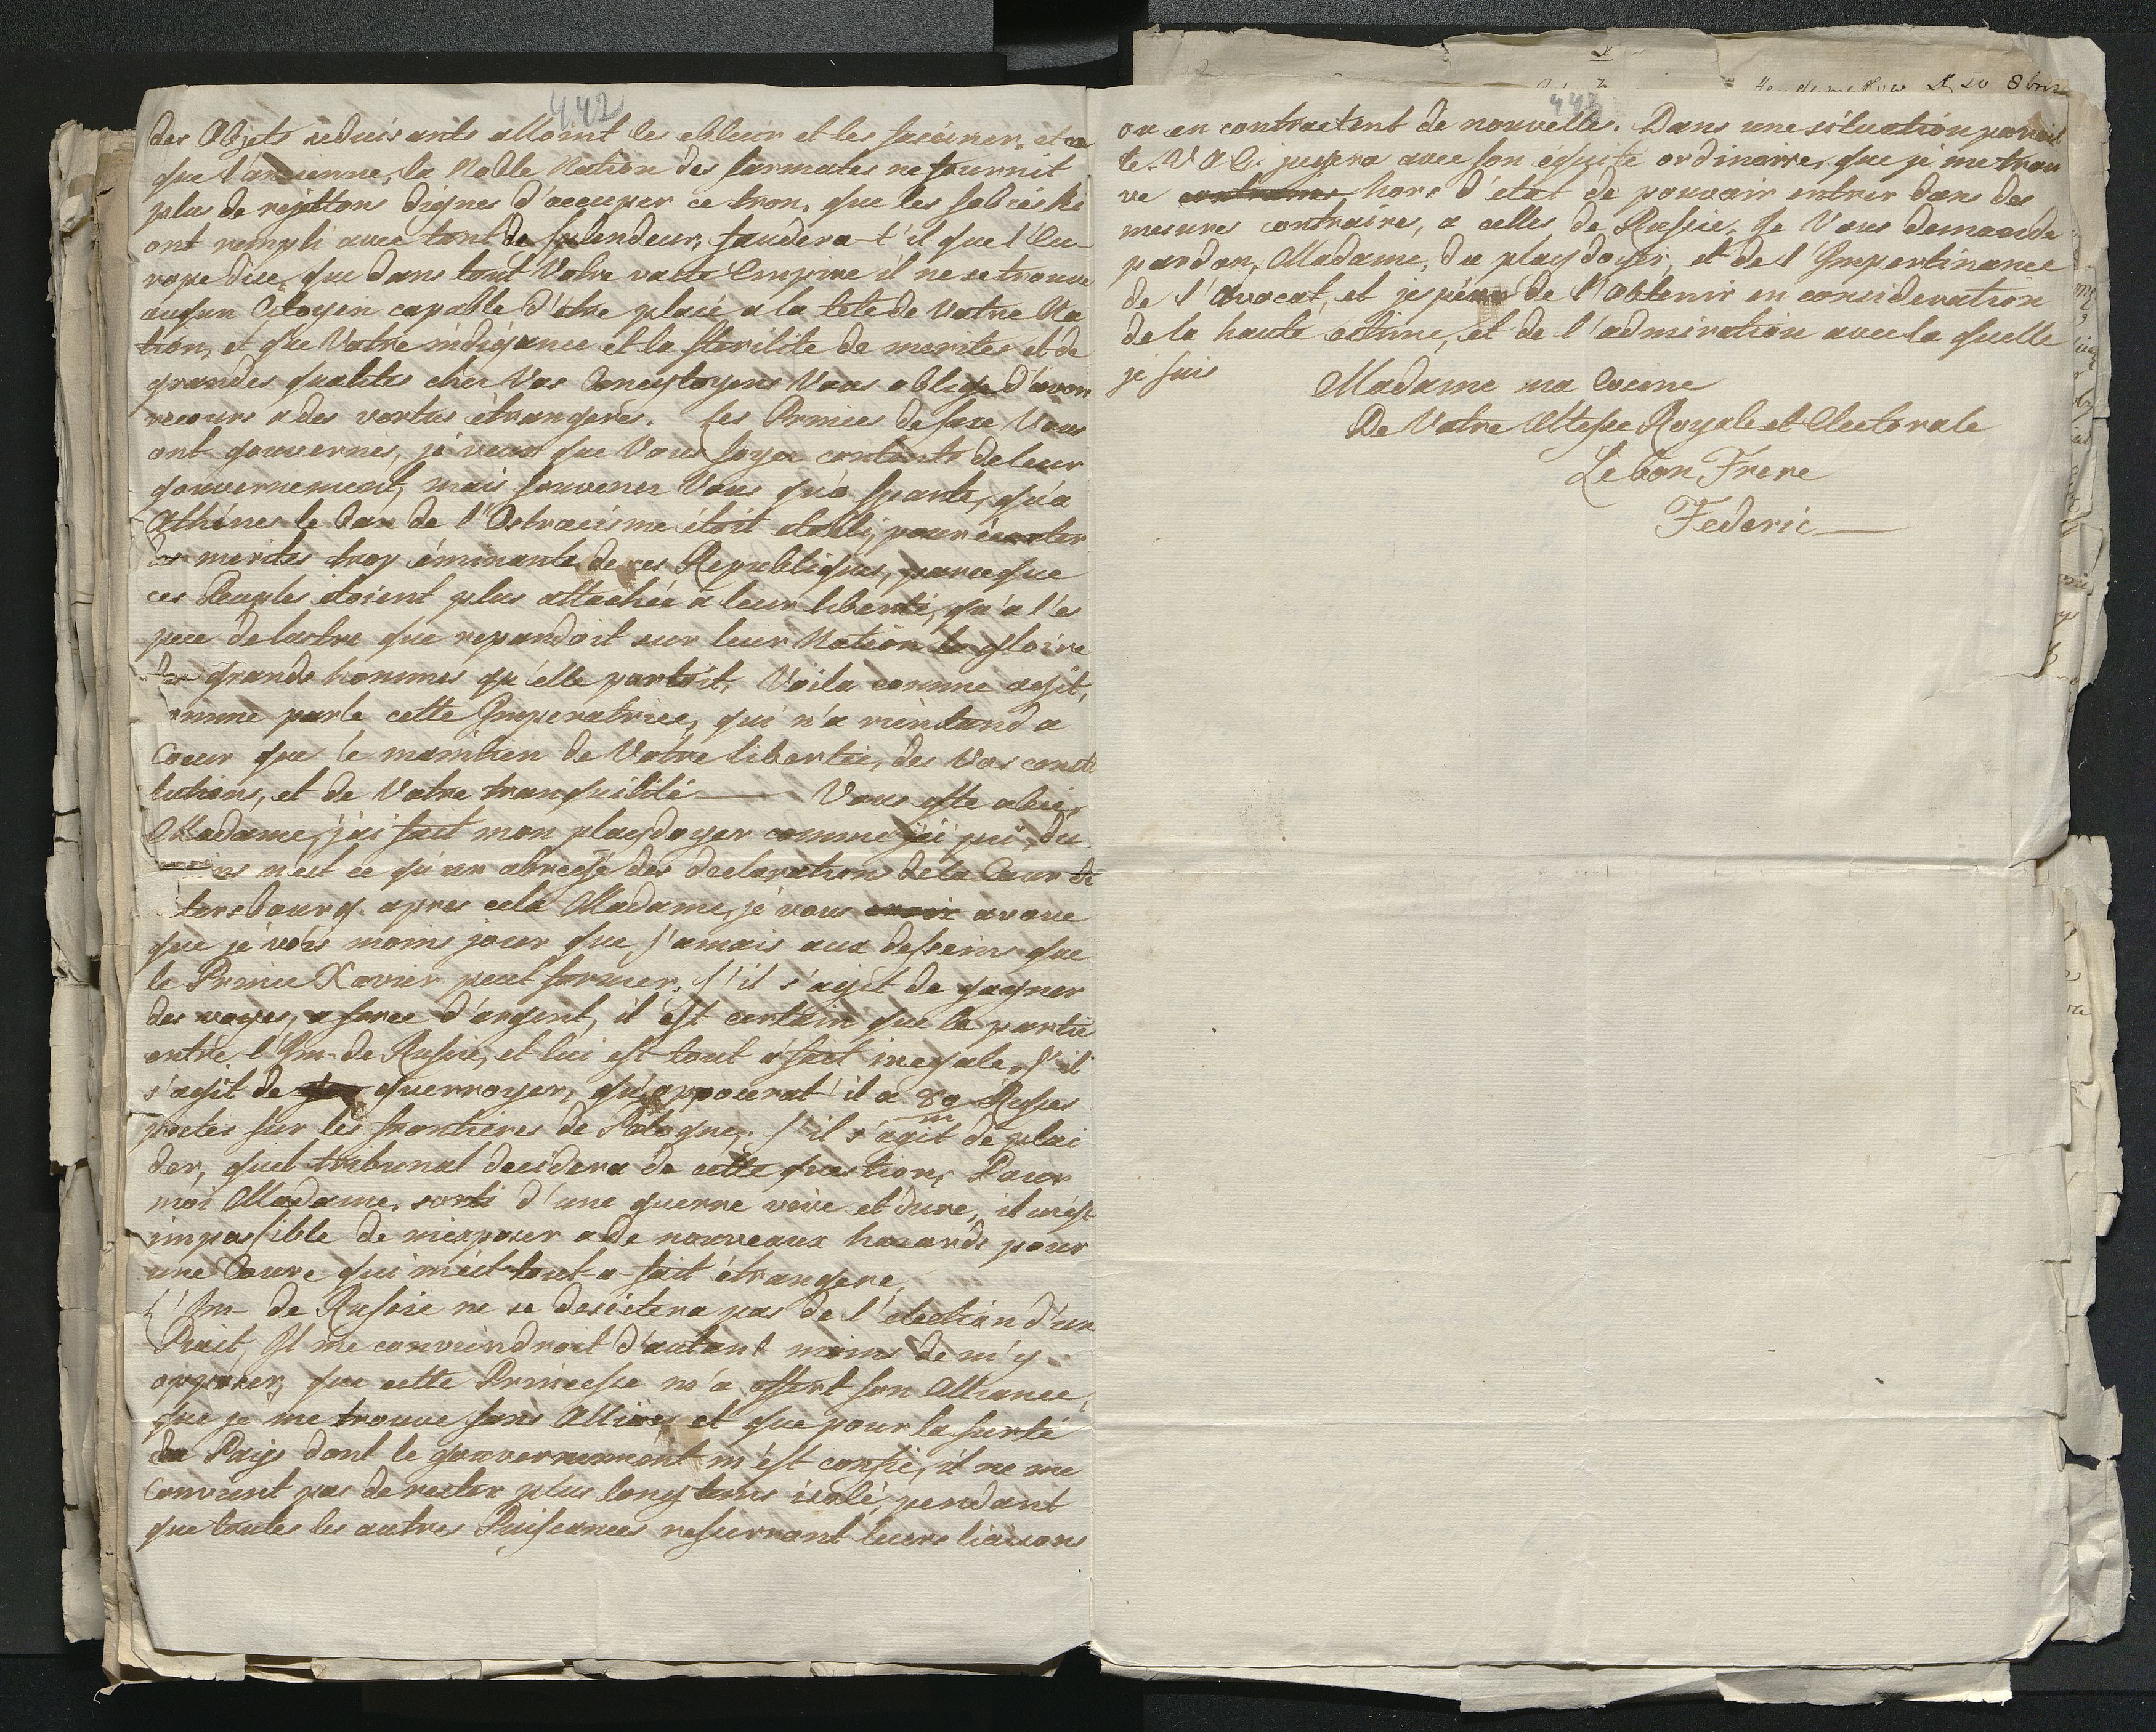 442
des Objets seduisants alloint les ebluir et les fasciner, et ce
que l'ancienne, la Noble Nation des sarmates ne fournit
plus de rejettons dignes d'occuper ce tron, que les sobieski
ont rempli avec tant de splendeur, faudera-t'il que l'Eu-
rope dise, que dans tout Votre vaste Empire il ne se trouve
aucun Citoyen capable d'etre placé a la tete de Votre Na
tion, et que Votre indigance et la sterilite de merites et de
grandes qualites chez Vos Concytoyens Vous oblige d'avoir
recours a des vertus étrangeres. Les Princes de saxe Vous
ont gouvernés, je veux que Vous soyez contents de leur
gouvernement, mais souvenez Vous qu'a sparte, qu'a
Athénes le ban de l'Ostracisme étoit etabli, pour écarter
des merites trop éminants de ces Republiques, parceque
ces Peuples étoient plus attachés a leur liberté, qu'a l'es
pece de lustre que repandoit sur leur Nation la gloire
des grands hommes qu'elle portoit, Voila comme agit,
omme parle cette Imperatrice, qui n'a rien tand a
Coeur que le maintien de Votre libertée, des Vos consti
tutions, et de Votre tranquilité — Vous este obeie,
Madame, j'ai fait mon playdoyer comme j'ai pu, du
n'est ce qu'un abregé des declarations de la Cour de
tersbourg. apres cela Madame, je vous avoue
que je vois moins jour que j'amais aux desseins que
le Prince Xavier peut former. s'il s'agit de gagner
des voyes, a force d'argent, il est certain que la partie
entre l'Im- de Russie, et lui est tout a fait inegale, s'il
s'agit de guerroyer, qu'opposerat'il a 80 Russes
m
postes sur les frontieres de Pologne, s'il s'agit de plai
der, quel tribunal decidera de cette question, Pour
moi Madame, sorti d'une guerre vive et dure, il m'est
impossible de m'exposer a de nouveaux hazards pour
une Cause qui m'est tout-a-fait étrangere,
L'Im- de Russie ne se desistera pas de l'election d'un
Piast, Il me conviendroit d'autant moins de m'y
opposer, que cette Princesse m'a offert son Alliance,
que je me trouve sans Alliés, et que pour la surté
du Pays dont le gouvernement m'est confié, il ne me
Convient pas de rester plus longtems isolé, pendant
que toutes les autres Puissances resserrent leurs liaisons
443
ou en contractent de nouvelles. Dans une situation pareil
le. V A E. jugera avec son équité ordinaire, que je me trou
ve hors d'état de pouvoir entrer dans des
mesures contraires, a celles de Russie. Je Vous demande
pardon, Madame, du playdoyer, et de l'Impertinance
de l'Avocat, et j'espére de l'obtenir en consideration
de la haute estime, et de l'admiration avec la quelle
je suis
Madame ma Soeure
De Votre Altesse Royale et Electorale
Le bon Frere
Federic